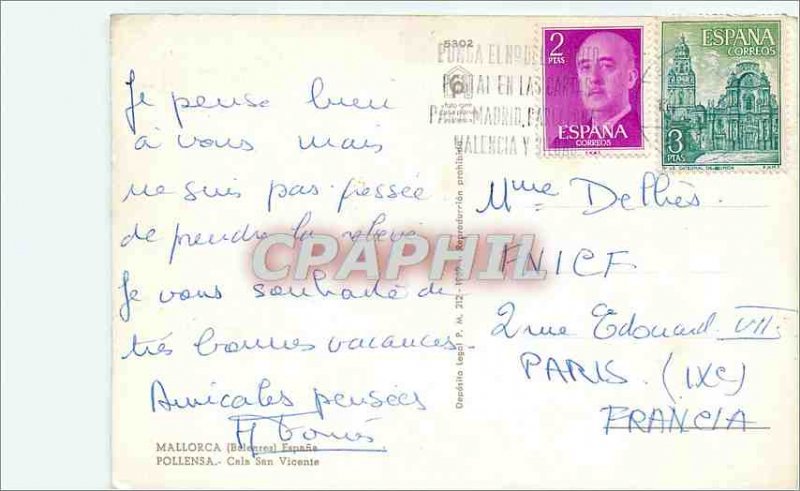 Je pense bien
à vous mais
ne suis pas pressée
de prendre la relève
Je vous souhaite de
très bonnes vacances.
Amicales pensées
MALLORCA (Baleares) España
POLLENSA.- Cala San Vicente
5302
Depósito Legal P. M. 212 - Reproducción prohibida
PONGA EL Nº DEL
POSTAL EN LAS CARTAS
MADRID, BARCELONA
VALENCIA Y
2
PTAS
ESPAÑA
CORREOS
ESPAÑA
CORREOS
3
PTAS
CPAPHIL
Mme Delhès.
FNICF
2 rue Edouard VII
PARIS. (IXe)
FRANCIA